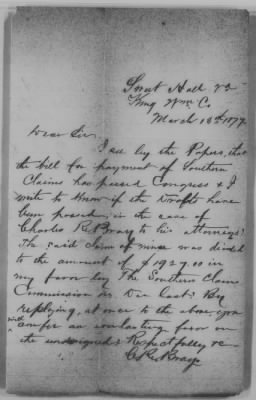 Hall Va
King Wm Co.
March 13th 1877
Dear Sir,
I see by the Papers, that
the bill for payment of Southern
Claims has passed Congress & I
write to know if the Drafts have
been passed, in the case of
Charles R. Bray to his attorneys?
The said claim of mine was decided
to the amount of $1927.00 in
my favor by The Southern Claims
Commission in Dec last? By
replying, at once to the above, you
will confer an everlasting favor on
the undersigned? Respectfully &c
C R Bray